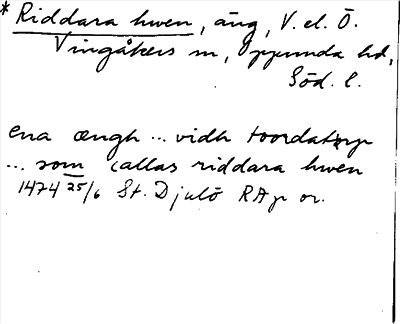 * Riddara hwen, äng, V. el. Ö.
Vingåkers sn, Oppunda hd,
Söd. l.
ena ængh ... vidh toordatorp
... som callas riddara hwen
1474 25/6 St. Djulö RAp or.